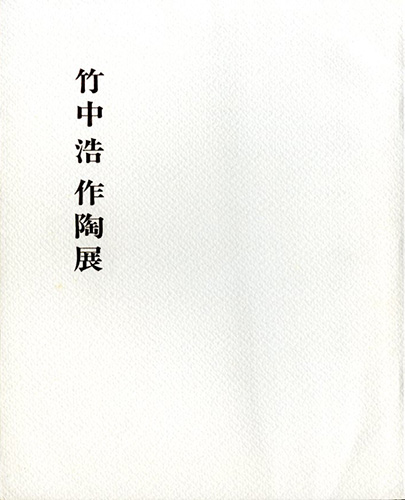 竹中浩 作陶展